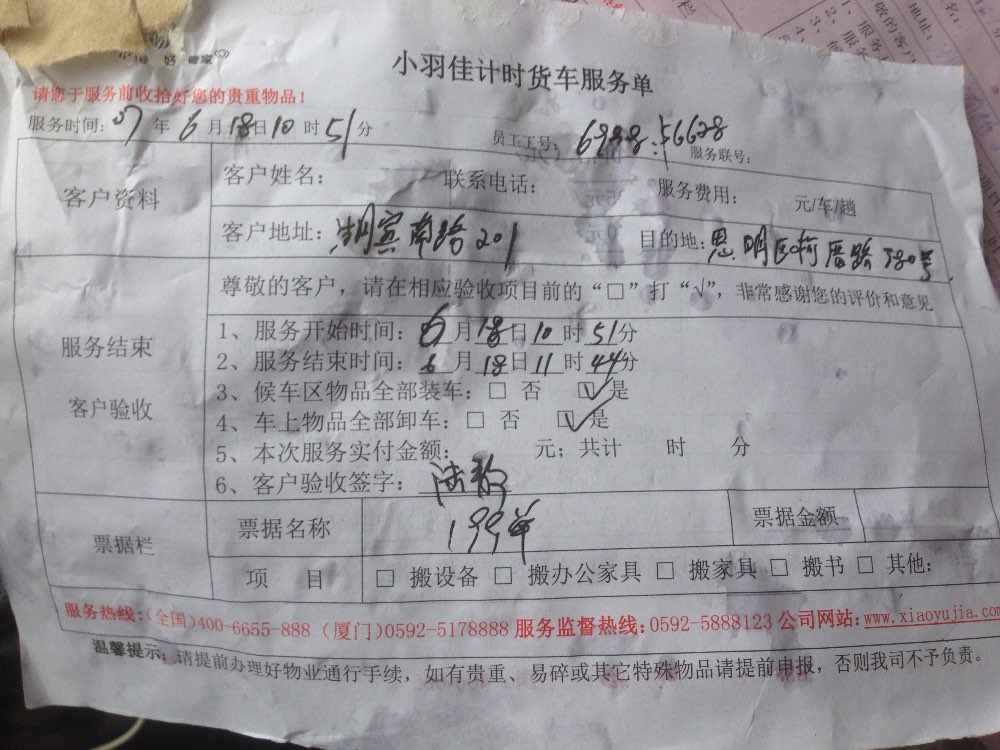 小羽佳计时货车服务单
请您于服务前收拾好您的贵重物品！
服务时间：07年6月18日10时51分 员工工号：6988：56628 服务联号：
客户资料 客户姓名： 联系电话： 服务费用： 元/车/趟
客户地址：湖宾南路201 目的地：思明区柯厝路380号
尊敬的客户，请在相应验收项目前的“□”打“√”，非常感谢您的评价和意见
服务结束
客户验收
1、服务开始时间：6月18日10时51分
2、服务结束时间：6月18日11时44分
3、候车区物品全部装车：□ 否 ☑是
4、车上物品全部卸车：□ 否 ☑是
5、本次服务实付金额： 元；共计 时 分
6、客户验收签字：
票据栏 票据名称 199单 票据金额
项 目 □ 搬设备 □ 搬办公家具 □ 搬家具 □ 搬书 □ 其他：
服务热线：（全国）400-6655-888（厦门）0592-5178888 服务监督热线：0592-5888123 公司网站：www.xiaoyujia.com
温馨提示：请提前办理好物业通行手续，如有贵重、易碎或其它特殊物品请提前申报，否则我司不予负责。